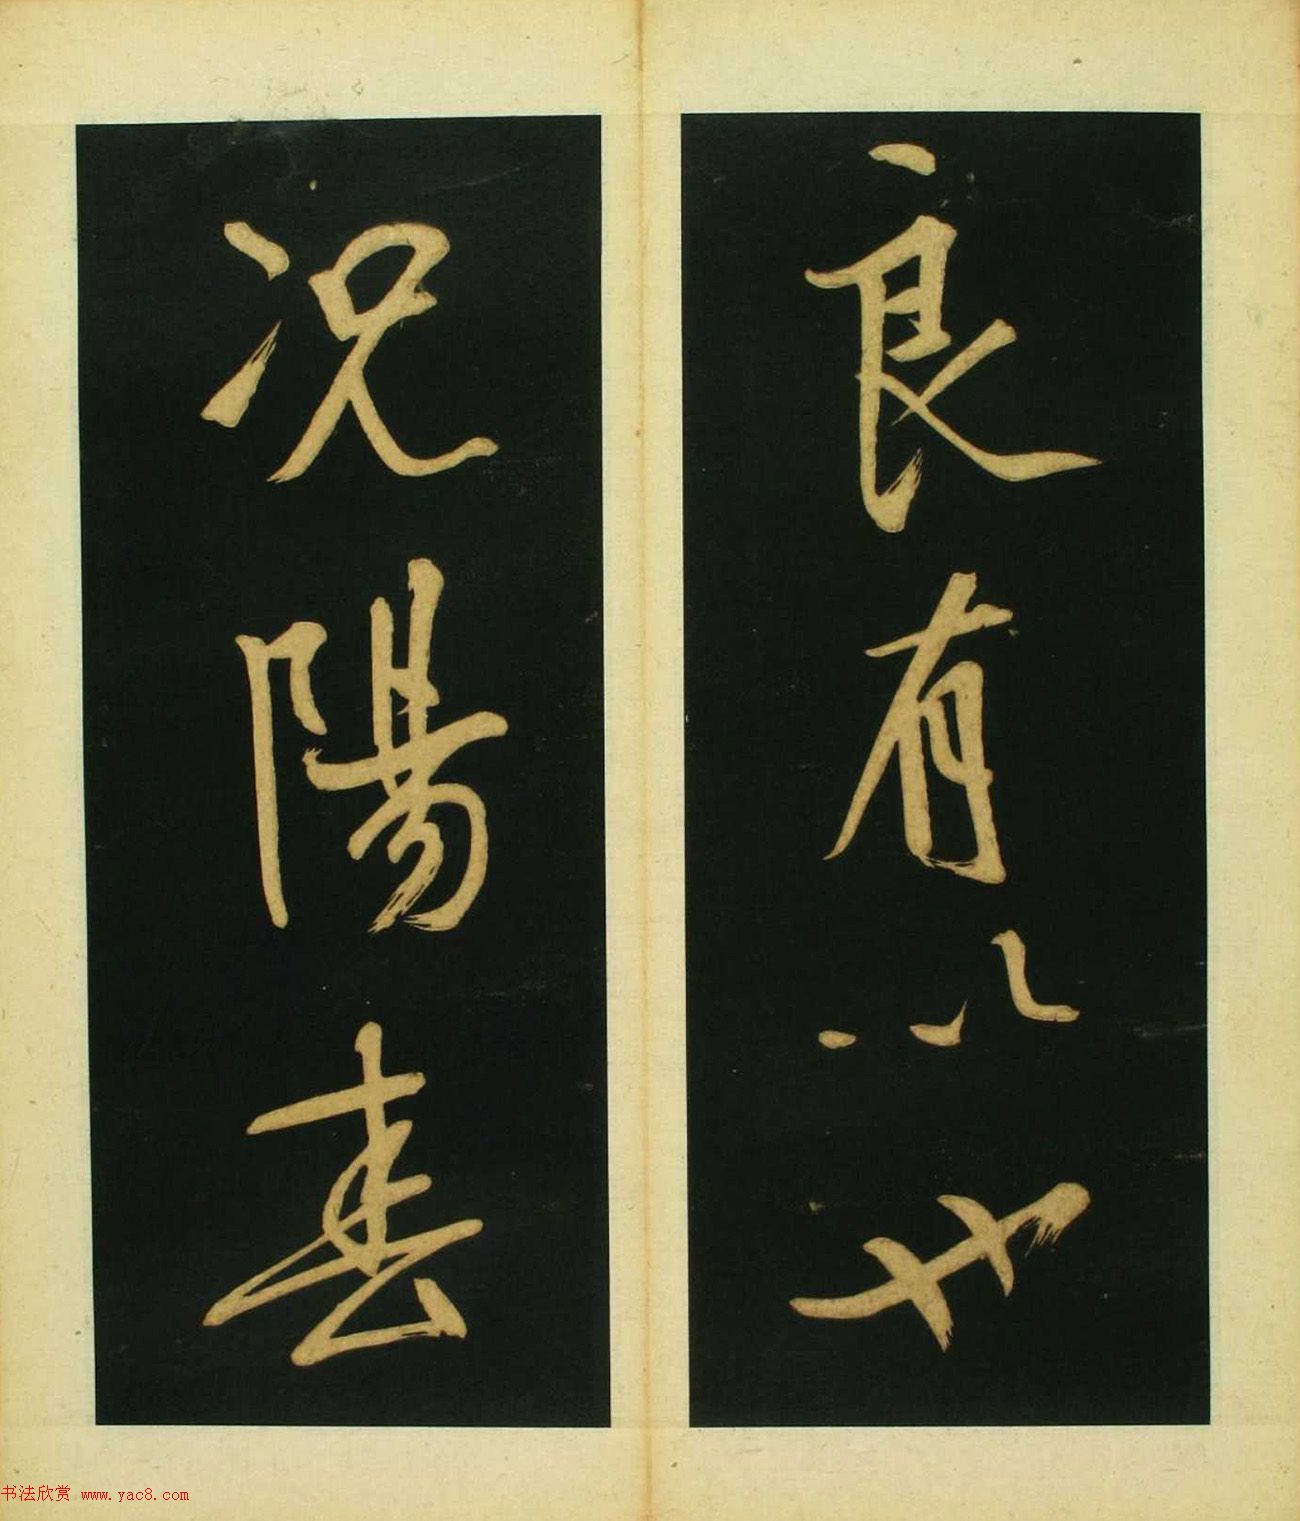 良有以也
況陽春
书法欣赏 www.yac8.com